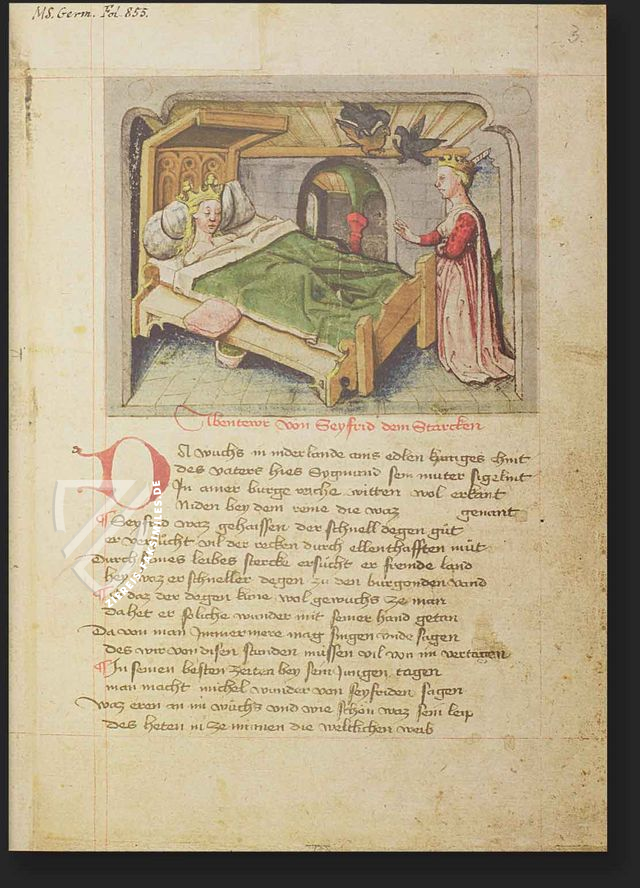 MS. Germ. Fol. 855.
3.
Abentewr von Seyfrid dem Starcken
DA wuchs in niderlande ains edlen kuniges chint
des vaters hies Sygmund sein muter sigelint
In ainer burge reiche witten wol erkant
Niden bey dem reine die waz genant
Seyfrid waz gehaissen der schnell degen gut
er versucht vil der recken durch ellenthafften mut
Durch seines leibes stercke ersucht er fremde land
hey waz er schneller degen zu den burgonden vand
daz der degen küne wol gewuchs ze man
Da het er soliche wunder mit seiner hand getan
Da von man Immer mere mag singen unde sagen
des wir von disen stunden müssen vil von im vertagen
In seinen besten zeiten bey sein Jungen tagen
man macht michel wunder von seyfriden sagen
waz eren an im wüchs und wie schön waz sein leip
des heten in ze minnen die weltlichen weib